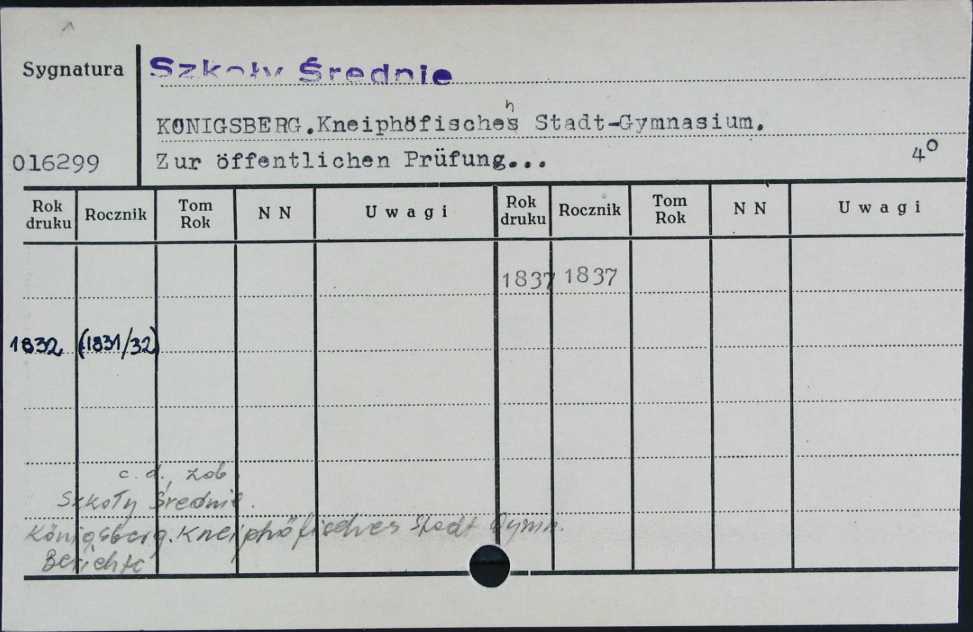 Sygnatura Szkoły Średnie
KÖNIGSBERG.Kneiphöfisches Stadt-Gymnasium.
h
016299 Zur öffentlichen Prüfung... 4°
Rok druku Rocznik Tom Rok N N Uwagi Rok druku Rocznik Tom Rok N N Uwagi
1837 1837
1832 (1831/32)
c.d. zob.
Szkoły Średnie.
Königsberg. Kneiphöfisches Stadt Gymn.
Berichte